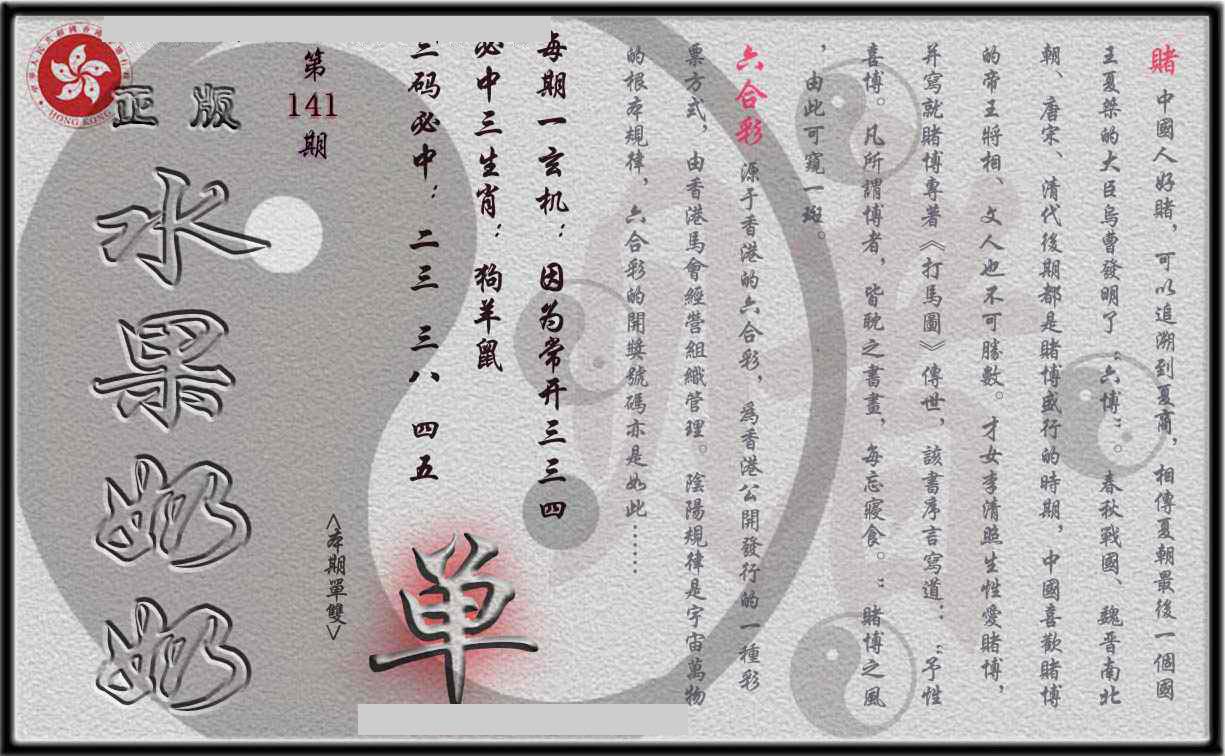 賭 中國人好賭，可以追溯到夏商，相傳夏朝最後一個國
王夏桀的大臣烏曹發明了“六博”。春秋戰國、魏晋南北
朝、唐宋、清代後期都是賭博盛行的時期，中國喜歡賭博
的帝王將相、文人也不可勝數。才女李清照生性愛賭博，
并寫就賭博專著《打馬圖》傳世，該書序言寫道：“予性
喜博。凡所謂博者，皆耽之書畫，每忘寢食。”賭博之風
，由此可窺一斑。
六合彩 源于香港的六合彩，爲香港公開發行的一種彩
票方式，由香港馬會經營組織管理。陰陽規律是宇宙萬物
的根本規律，六合彩的開獎號碼亦是如此……
每期一玄机：因为常开三三四
必中三生肖：狗羊鼠
三码必中：二三 三八 四五
第
141
期
<本期單雙>
单
正版
水果奶奶
HONG KONG